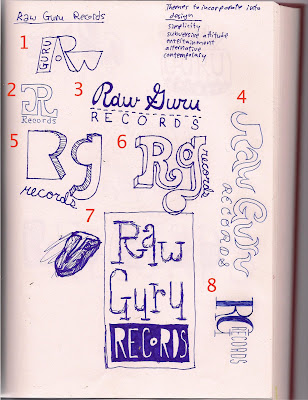 Raw Guru Records
Themes to incorporate into
design
simplicity
subversive attitude
entertainment
alternative
contemporary
1
GURU
RW
2
R
Records
3
Raw Guru
RECORDS
4
Raw Guru
RECORDS
5
Rg
records
6
Rg
records
7
Raw
Guru
RECORDS
8
RG
RECORDS